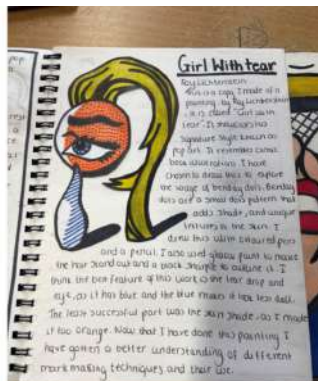 Girl With tear
Roy Lichtenstein
This is a copy I made of a
painting by Roy Lichtenstein
. It is called "Girl with
tear". It showcases his
signature style known as
pop art. It resembles comic
book illustrations. I have
chosen to draw this to explore
the usage of benday dots. Benday
dots are a small dots pattern that
adds shade, and unique
textures to the skin. I
drew this with coloured pens
and a pencil. I also used glossy paint to make
the hair stand out and a black sharpie to outline it. I
think the best feature of this work is the tear drop and
eye, as it has blue and the blue makes it look less dull.
The least successful part was the skin shade, as I made
it too orange. Now that I have done this painting I
have gotten a better understanding of different
mark making techniques and their use.